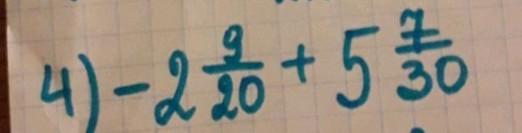 4) -2 9/20 + 5 7/30